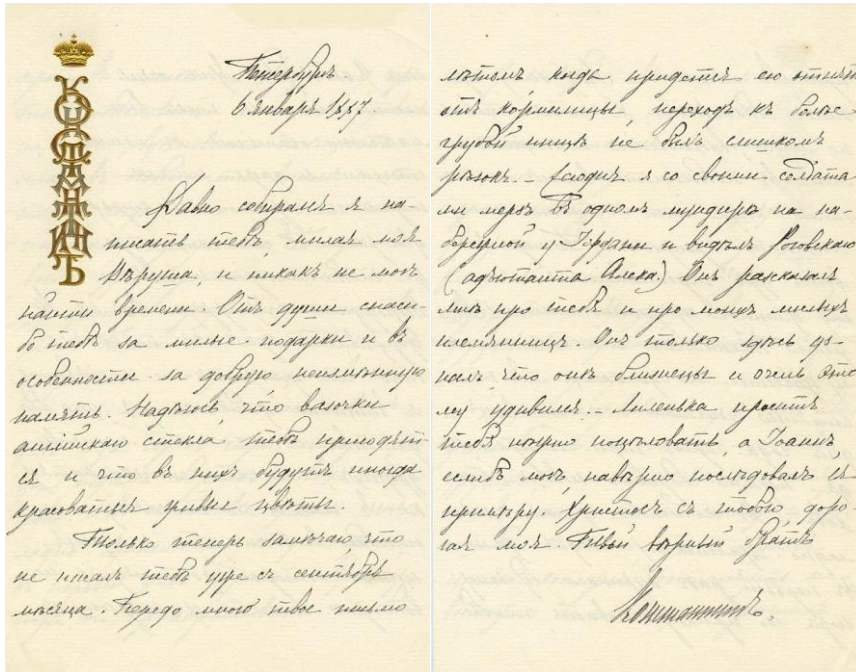 КОНСТАНТИНЪ
Петербургъ
6 января 1887.
Давно собирался я на-
писать тебѣ, милая моя
Вѣруша, и никакъ не могъ
найти времени. Отъ души спаси-
бо тебѣ за милые подарки и въ
особенности за добрую неизмѣнную
память. Надѣюсь, что вазочки
англійскаго стекла тебѣ пригодят-
ся и что въ нихъ будутъ иногда
красоваться живые цвѣты.
Только теперь замѣчаю, что
не писалъ тебѣ уже съ сентября
мѣсяца. Передо мною твое письмо
лѣтомъ когда придется его отнять
отъ кормилицы, переходъ къ болѣе
грубой пищѣ не былъ слишкомъ
рѣзокъ. – Сегодня я со своими солдата-
ми мерзъ въ одномъ мундирѣ на на-
бережной у Іордани и видѣлъ Роговскаго
(адъютанта Алека.) Онъ разсказалъ
мнѣ про тебя и про моихъ милыхъ
племянницъ. Онъ только здѣсь уз-
налъ что онѣ близнецы и очень это-
му удивился. – Лиленька проситъ
тебя нѣжно поцѣловать, а Іоаннъ,
еслибъ могъ, навѣрно послѣдовалъ ея
примѣру. Христосъ съ тобою доро-
гая моя. Твой вѣрный братъ
Константинъ.